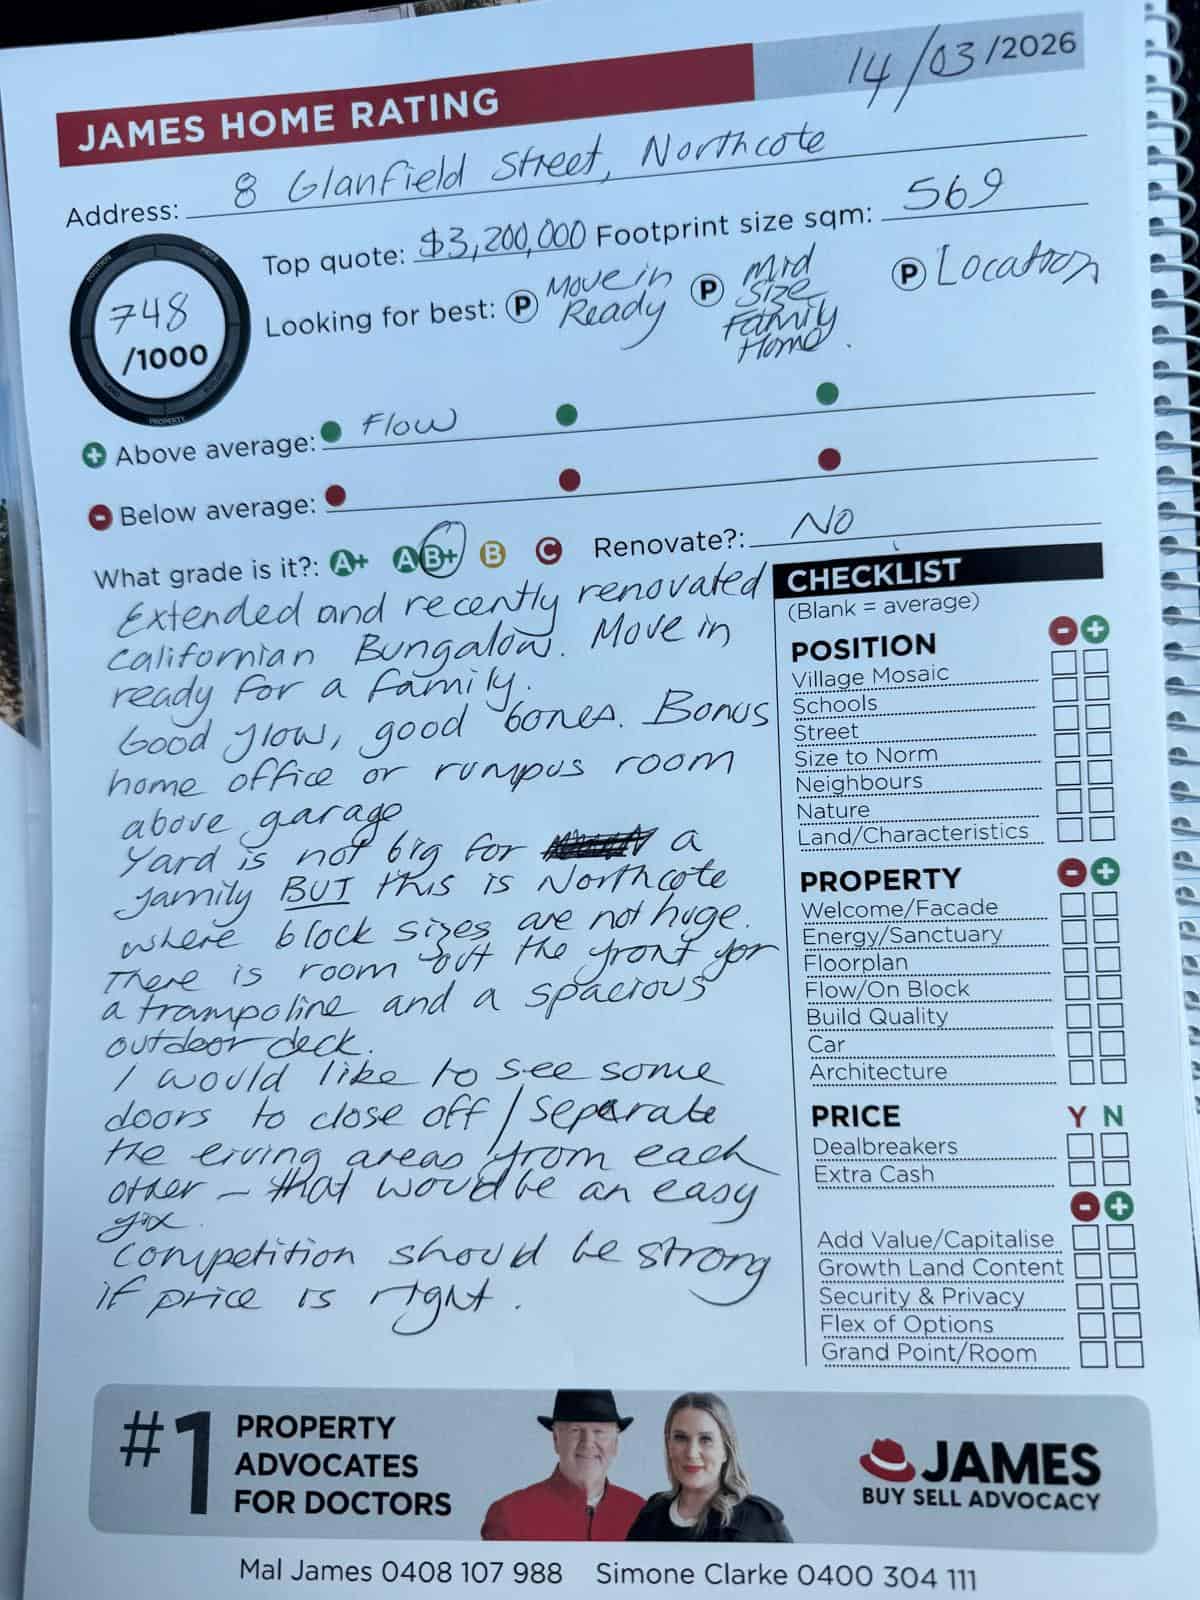 14/03/2026
JAMES HOME RATING
Address: 8 Glanfield Street, Northcote
Top quote: $3,200,000 Footprint size sqm: 569
748
/1000
POSITION
PRICE
PROPERTY
LAND
Looking for best: P Move in Ready P Mid Size Family Home. P Location
Above average: Flow
Below average:
What grade is it?: A+ A B+ B C Renovate?: No
Extended and recently renovated
Californian Bungalow. Move in
ready for a family.
Good flow, good bones. Bonus
home office or rumpus room
above garage
Yard is not big for a
family BUT this is Northcote
where block sizes are not huge.
There is room out the front for
a trampoline and a spacious
outdoor deck.
I would like to see some
doors to close off / separate
the living areas from each
other - that would be an easy
fix.
Competition should be strong
if price is right.
CHECKLIST
(Blank = average)
POSITION - +
Village Mosaic
Schools
Street
Size to Norm
Neighbours
Nature
Land/Characteristics
PROPERTY - +
Welcome/Facade
Energy/Sanctuary
Floorplan
Flow/On Block
Build Quality
Car
Architecture
PRICE Y N
Dealbreakers
Extra Cash
- +
Add Value/Capitalise
Growth Land Content
Security & Privacy
Flex of Options
Grand Point/Room
#1 PROPERTY
ADVOCATES
FOR DOCTORS
JAMES
BUY SELL ADVOCACY
Mal James 0408 107 988 Simone Clarke 0400 304 111